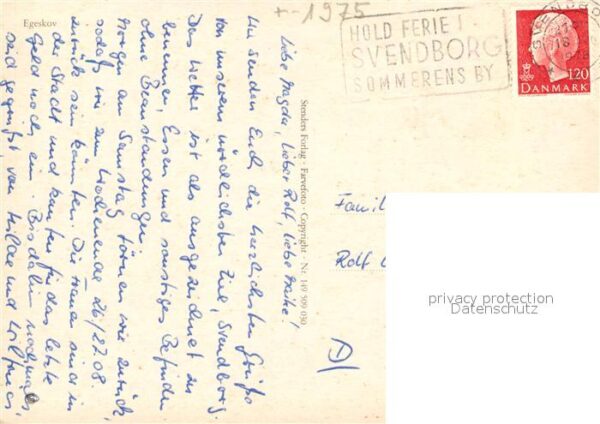 Egeskov
+-1975
HOLD FERIE I
SVENDBORG
SOMMERENS BY
SVENDBORG
120
DANMARK
Stenders Forlag - Farvefoto - Copyright - Nr. 149 509 030
Liebe Magda, lieber Rolf, liebe Heike!
Wir senden Euch die herzlichsten Grüße
von unserem nördlichsten Ziel, Svendborg.
Das Wetter ist als ausgezeichnet zu
benennen, Essen und sonstiges Befinden
ohne Beanstandungen.
Morgen am Samstag törnen wir zurück,
sodaß wir zum Wochenende 26/27.08.
zurück sein könnten. Die Frauen sind in
der Stadt und kaufen für das letzte
Geld noch ein. Bis dahin nochmals
seid gegrüßt von Hilde und
Famil
Rolf
D/
privacy protection
Datenschutz